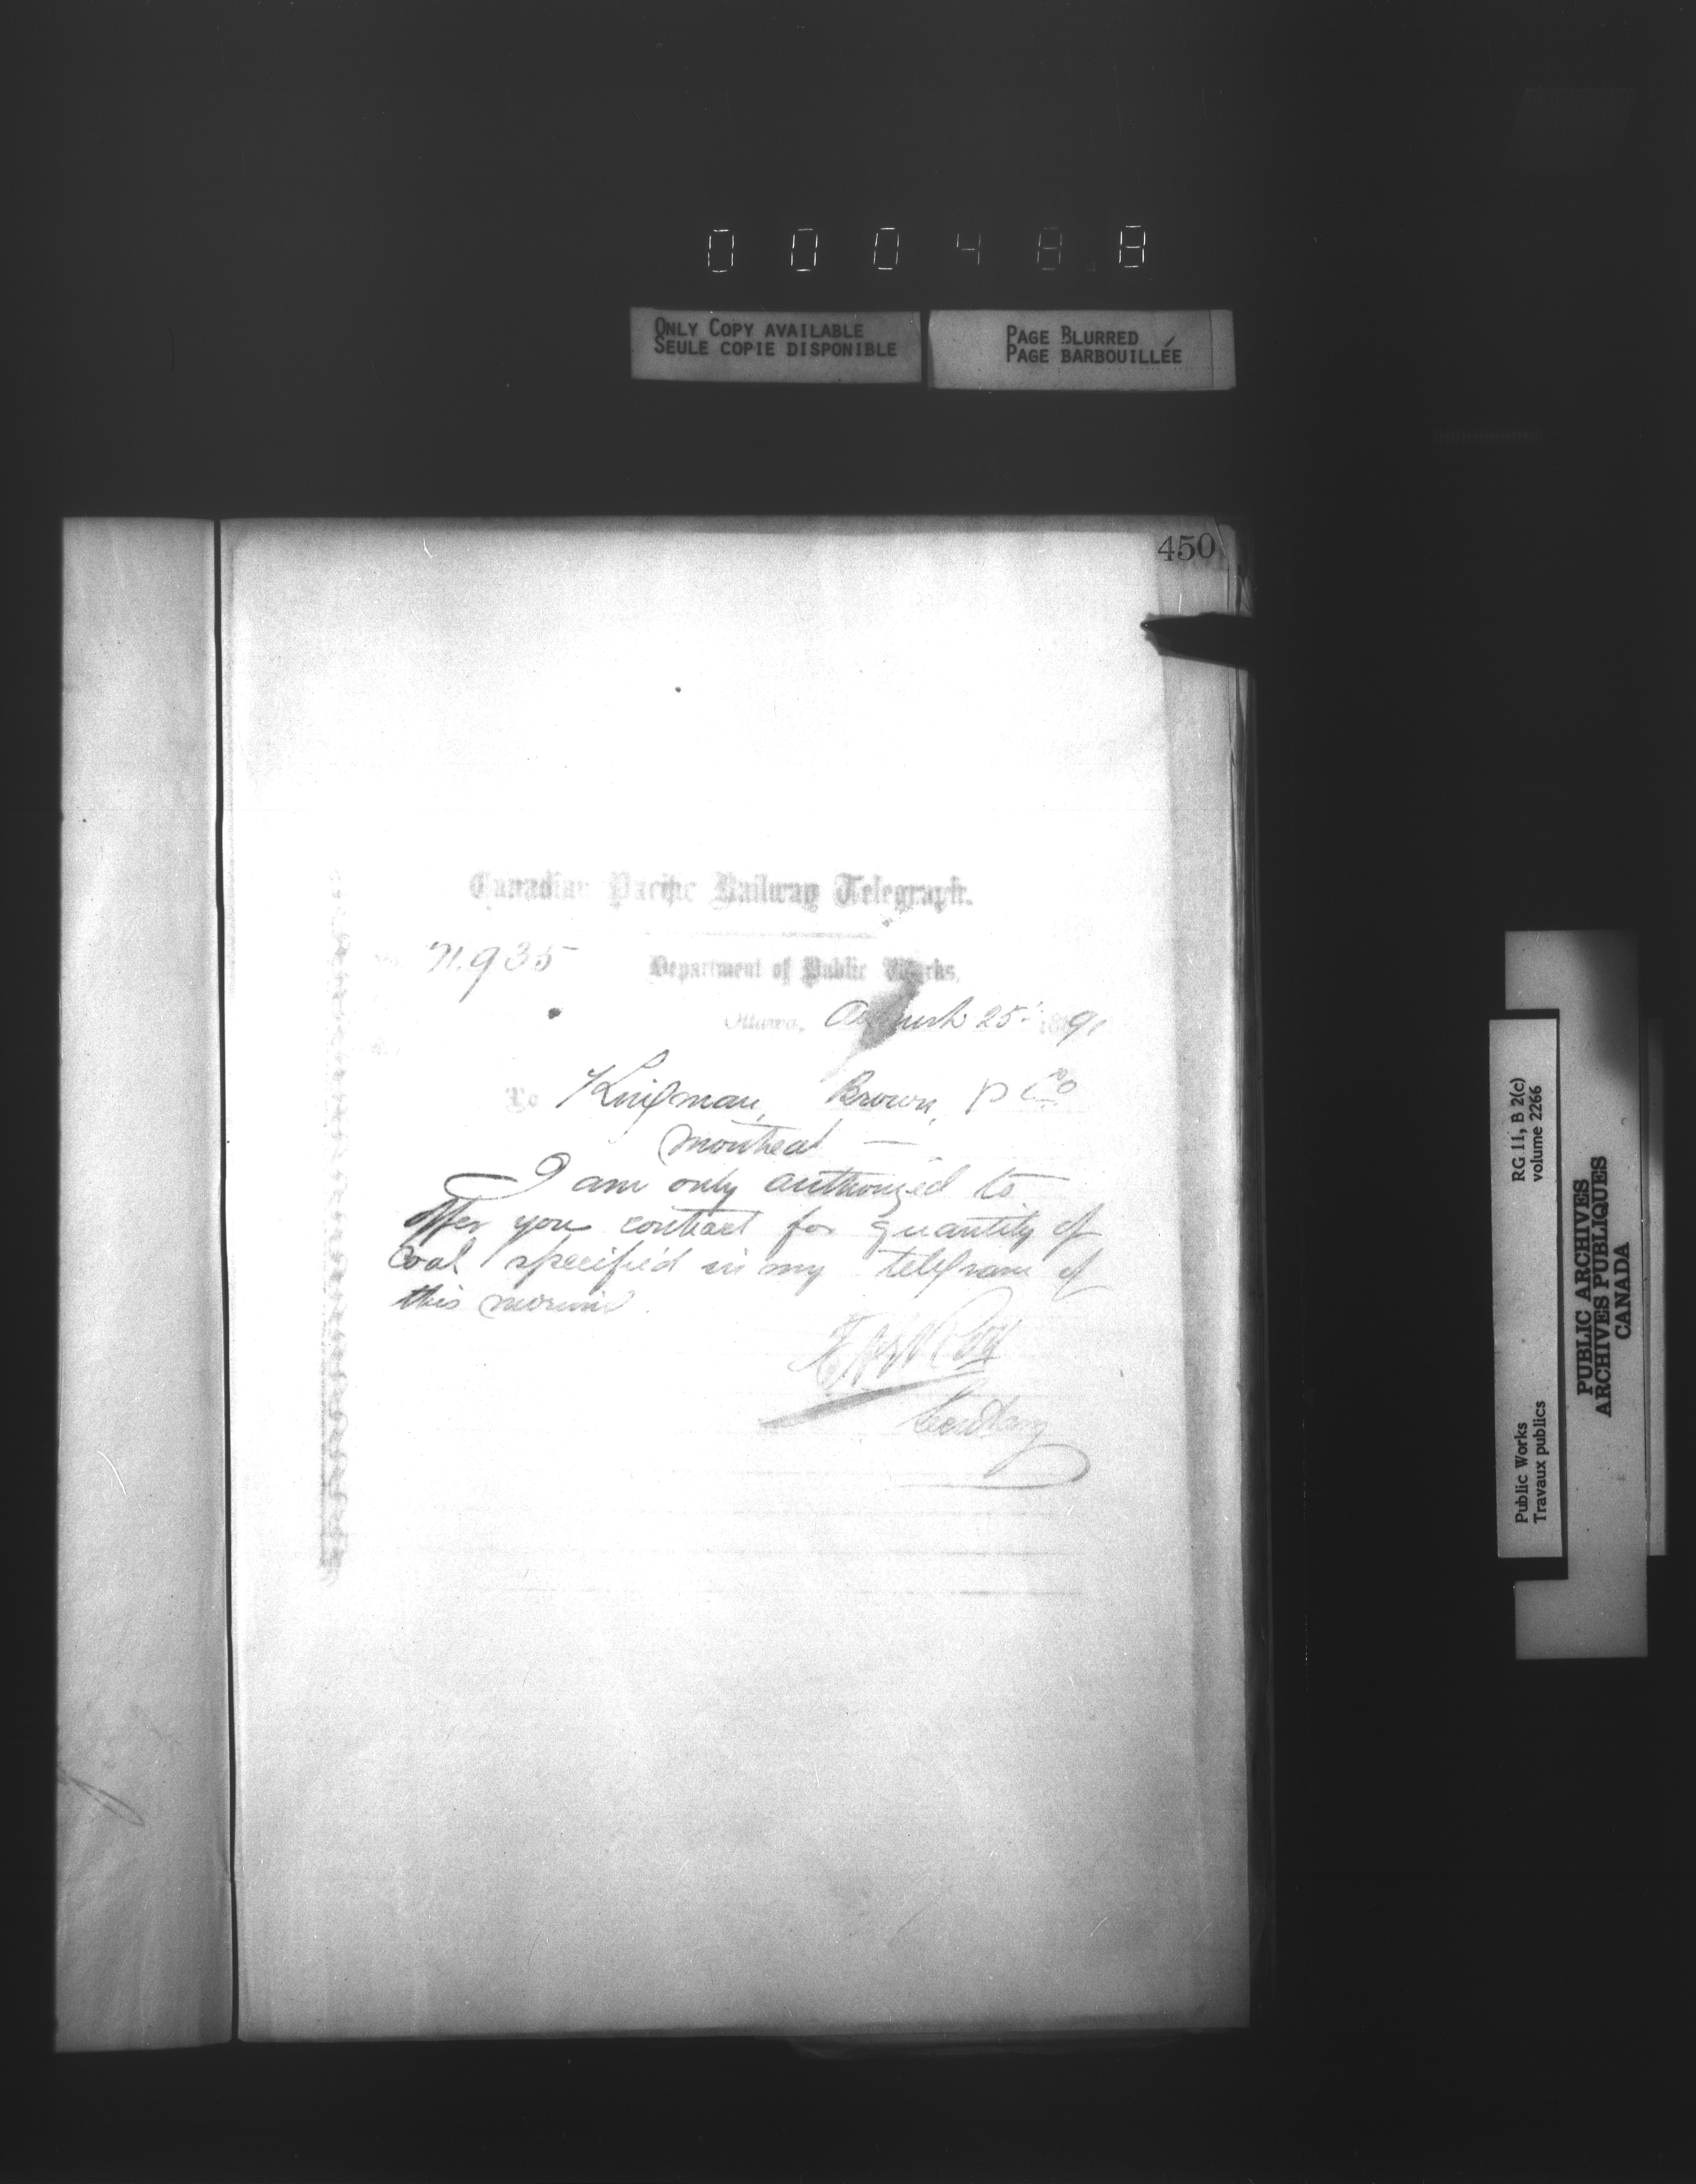 000488
ONLY COPY AVAILABLE
SEULE COPIE DISPONIBLE
PAGE BLURRED
PAGE BARBOUILLÉE
450
Canadian Pacific Railway Telegraph.
No. 71.935
Department of Public Works,
Ottawa, August 25th 1891
To Kingman, Brown, & Co
Montreal —
I am only authorized to
offer you contract for quantity of
Coal specified in my telegram of
this morning.
Secretary
Public Works
Travaux publics
RG 11, B 2(c)
volume 2266
PUBLIC ARCHIVES
ARCHIVES PUBLIQUES
CANADA